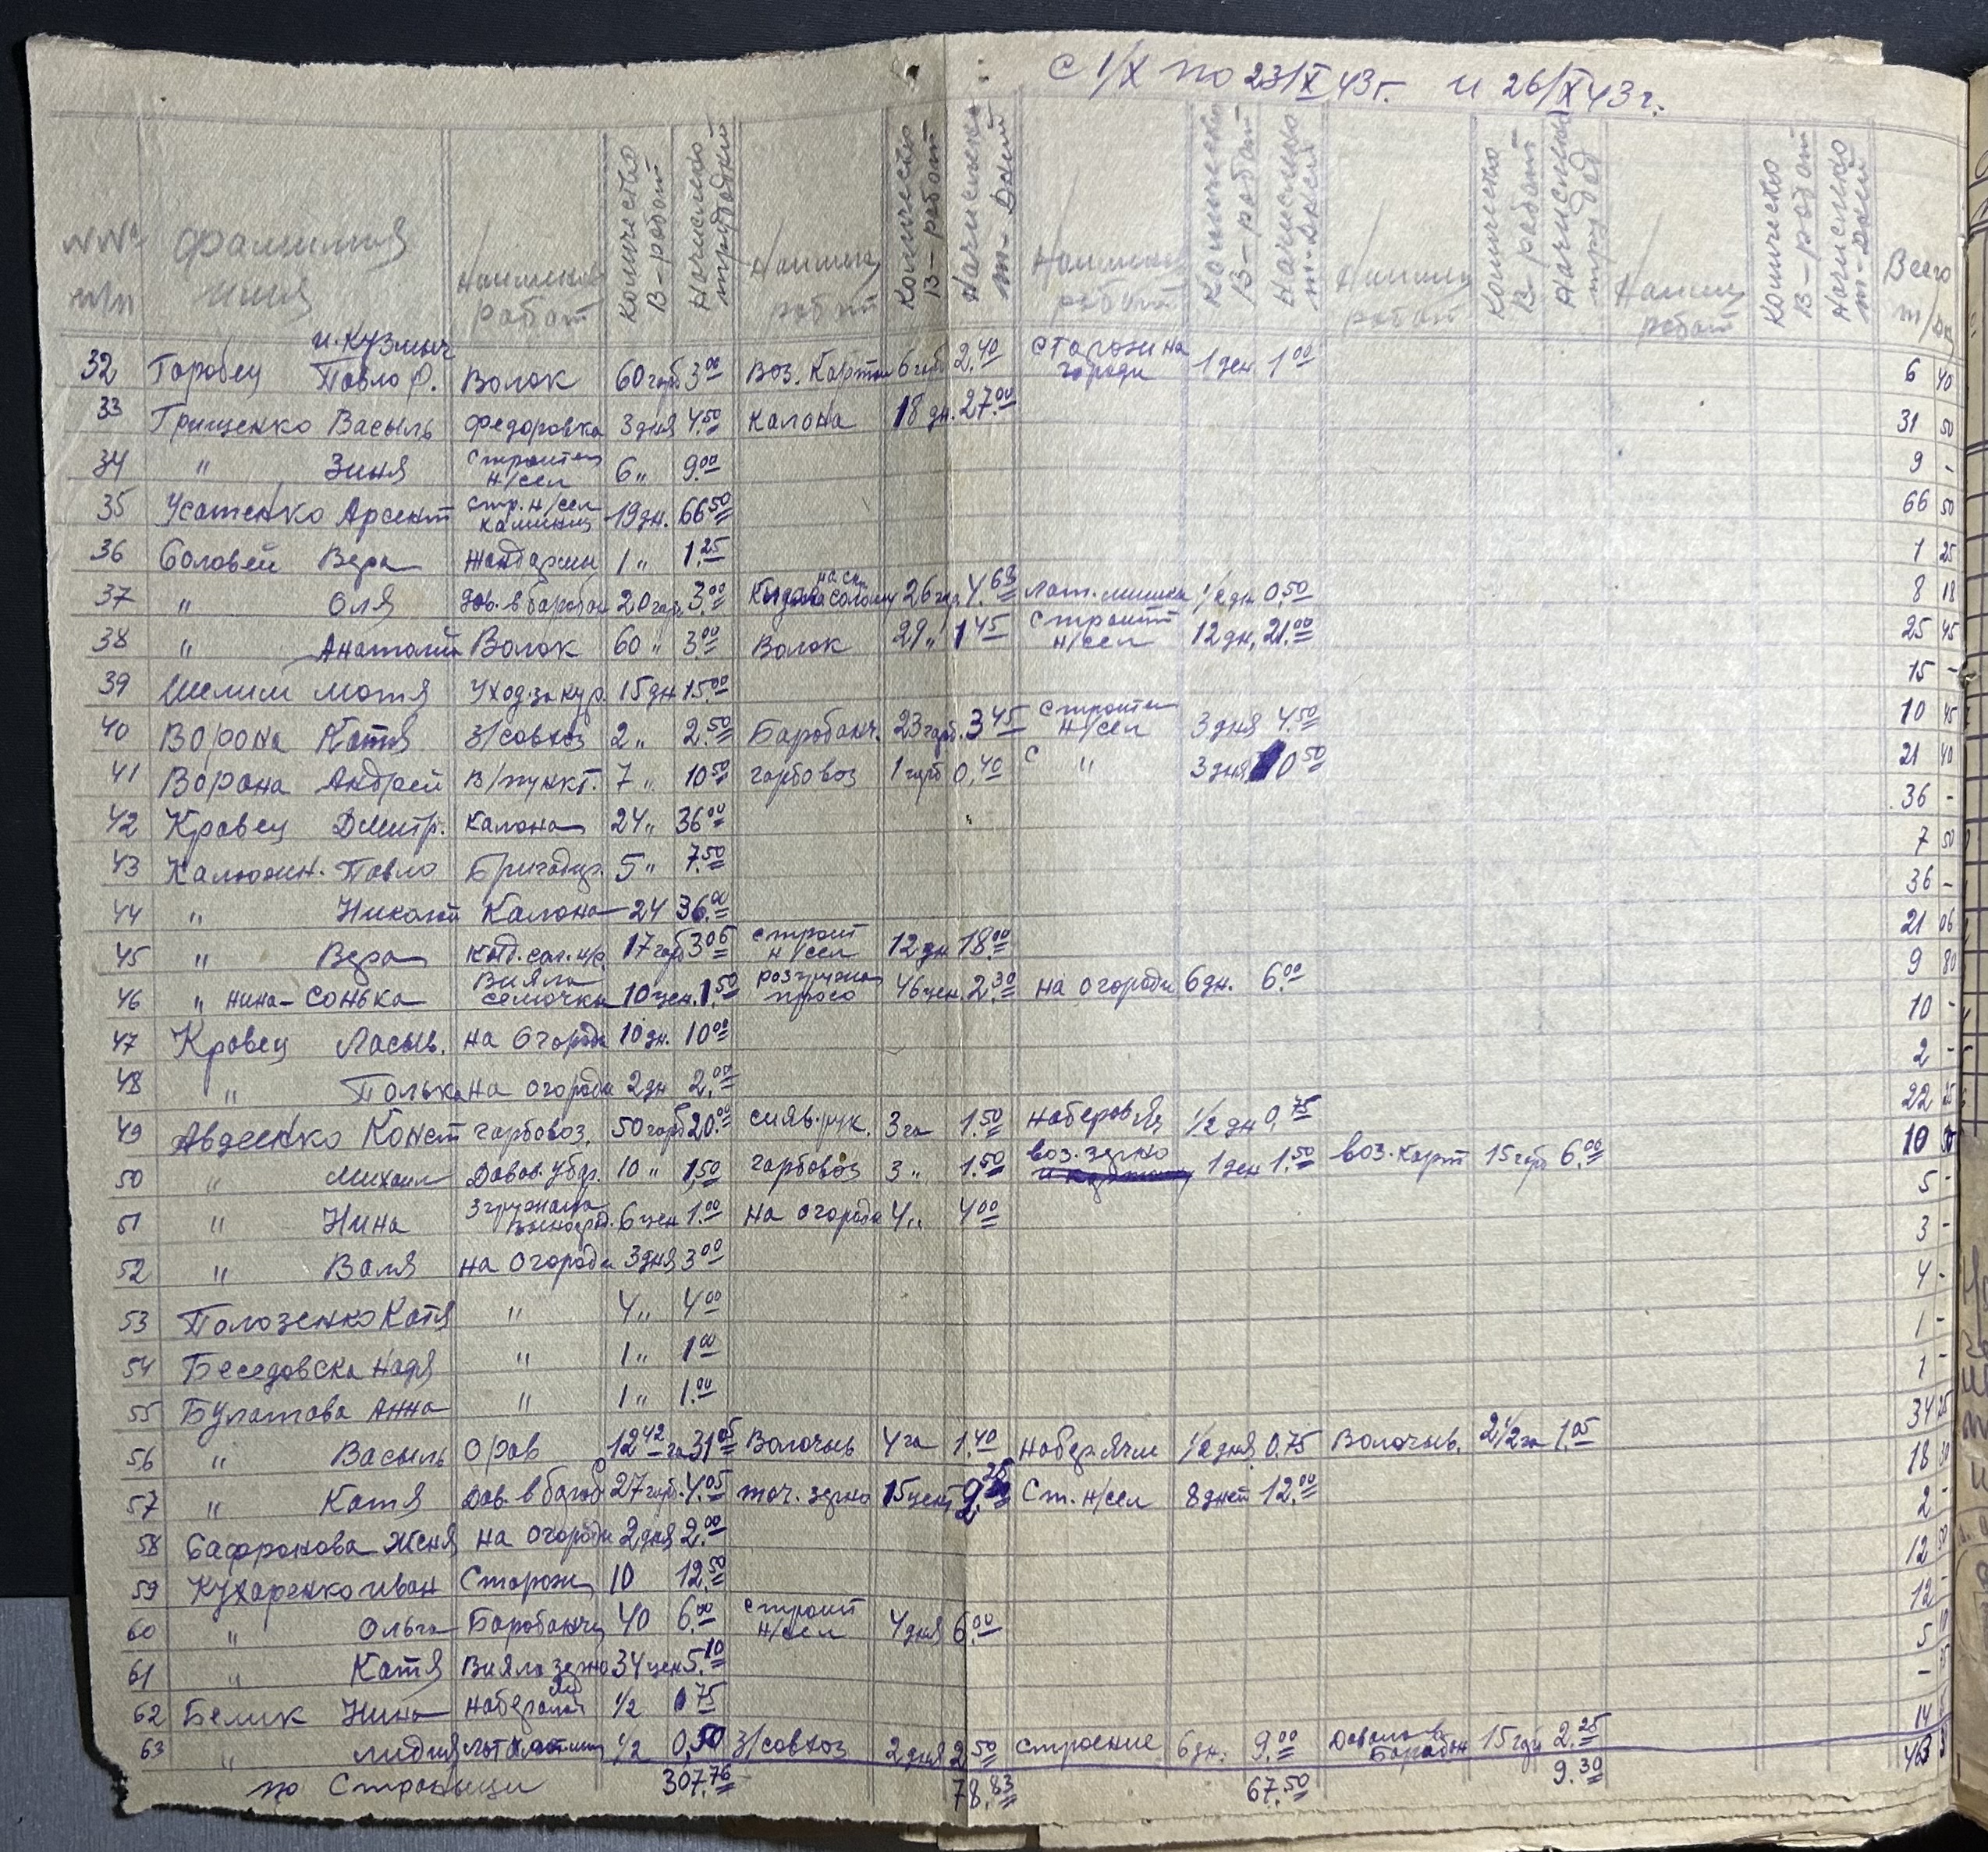 с 1/X по 23/X 43г. и 26/X 43г.
№№ п/п Фамилия имя Наименов работ Количество В-работ Начислено трудодней Наимен работ Количество В-работ Начислено т-дней Наименов работ Количество В-работ Начислено т-дней Наимен работ Количество В-работ Начислено труд Наимен работ Количество В-работ Начислено т-дней Всего т/дн
32 Горобец и. Кузмич Павло Ф. Волок 60 гарб 3.00 Воз. Картош 6 гарб 2.40 Сторожи на городи 1 ден 1.00 6 40
33 Грищенко Васыль Федоровка 3 дня 4.50 Калона 18 дн. 27.00 31 50
34 " Зиня Строител н/сел 6 " 9.00 9 -
35 Усатенко Арсент Стр. н/сел каминщ 19 дн. 66.50 66 50
36 Соловей Вера Жандарми 1 " 1.25 1 25
37 " Оля Дов. в барабан 20 гарб 3.00 Кидала солому 26 гар 4.63 Лат. мишки 1/2 дн 0.50 8 18
38 " Анатолий Волок 60 " 3.00 Волок 29 " 1.45 Строит н/сел 12 дн. 21.00 25 45
39 Шелим Мотя Уход за кур. 15 дн 15.00 15 -
40 Ворона Катя З/совхоз 2 " 2.50 Барабанч. 23 гарб. 3.45 Строител н/сел 3 дня 4.50 10 45
41 Ворона Андрей В/пункт. 7 " 10.50 гарбовоз 1 гарб 0.40 С " 3 дня 10.50 21 40
42 Кравец Дмитр. Калона 24 " 36.00 36 -
43 Калюжн. Павло Бригадир. 5 " 7.50 7 50
44 " Николай Калона 24 36.00 36 -
45 " Вера Кид. сол. 17 гарб 3.06 Строит н/сел 12 дн 18.00 21 06
46 " Нина-Сонька Вияла семочки 10 цен. 1.50 розгружал просо 46 цен. 2.30 на огороди 6 дн. 6.00 9 80
47 Кравец Ласыв. на огороди 10 дн. 10.00 10 -
48 " Полька на огороди 2 дн 2.00 2 -
49 Авдеенко Конст гарбовоз. 50 гарб 20.00 сияв. рук. 3 га 1.50 наберов Яч 1/2 дн 0,75 22 25
50 " Михаил Довов. убор. 10 " 1,50 гарбовоз 3 " 1.50 воз. зерно 1 ден 1.50 воз. карт 15 гарб 6.00 10 50
51 " Нина Згружала 6 цен 1.00 на огороди 4 " 4.00 5 -
52 " Валя на огороди 3 дня 3.00 3 -
53 Полозенко Катя " 4 " 4.00 4 -
54 Беседовска Надя " 1 " 1.00 1 -
55 Булатова Анна " 1 " 1.00 1 -
56 " Васыль Орав 12.42 га 31.05 Волочыв 4 га 1.40 набер ячм 1/2 дня 0.75 Волочыв. 2 1/2 га 1.05 34 25
57 " Катя Дов. в бараб 27 гарб. 4.05 точ. зерно 15 цент 2.25 Ст. н/сел 8 дней 12.00 18 30
58 Сафронова Женя на огороди 2 дня 2.00 2 -
59 Кухаренко Иван Сторож 10 12.50 12 50
60 " Ольга Барабанчи 40 6.00 строит н/сел 4 дня 6.00 12 -
61 " Катя Вияла зерно 34 цен 5.10 5 10
62 Белик Нина наберала 1/2 0.75 - 75
63 " Лидия 1/2 0,50 З/совхоз 2 дня 2.50 строение 6 дн. 9.00 Довала в барабан 15 гар 2.25 14
по Страныци 307.76 78.83 67.50 9.30 463